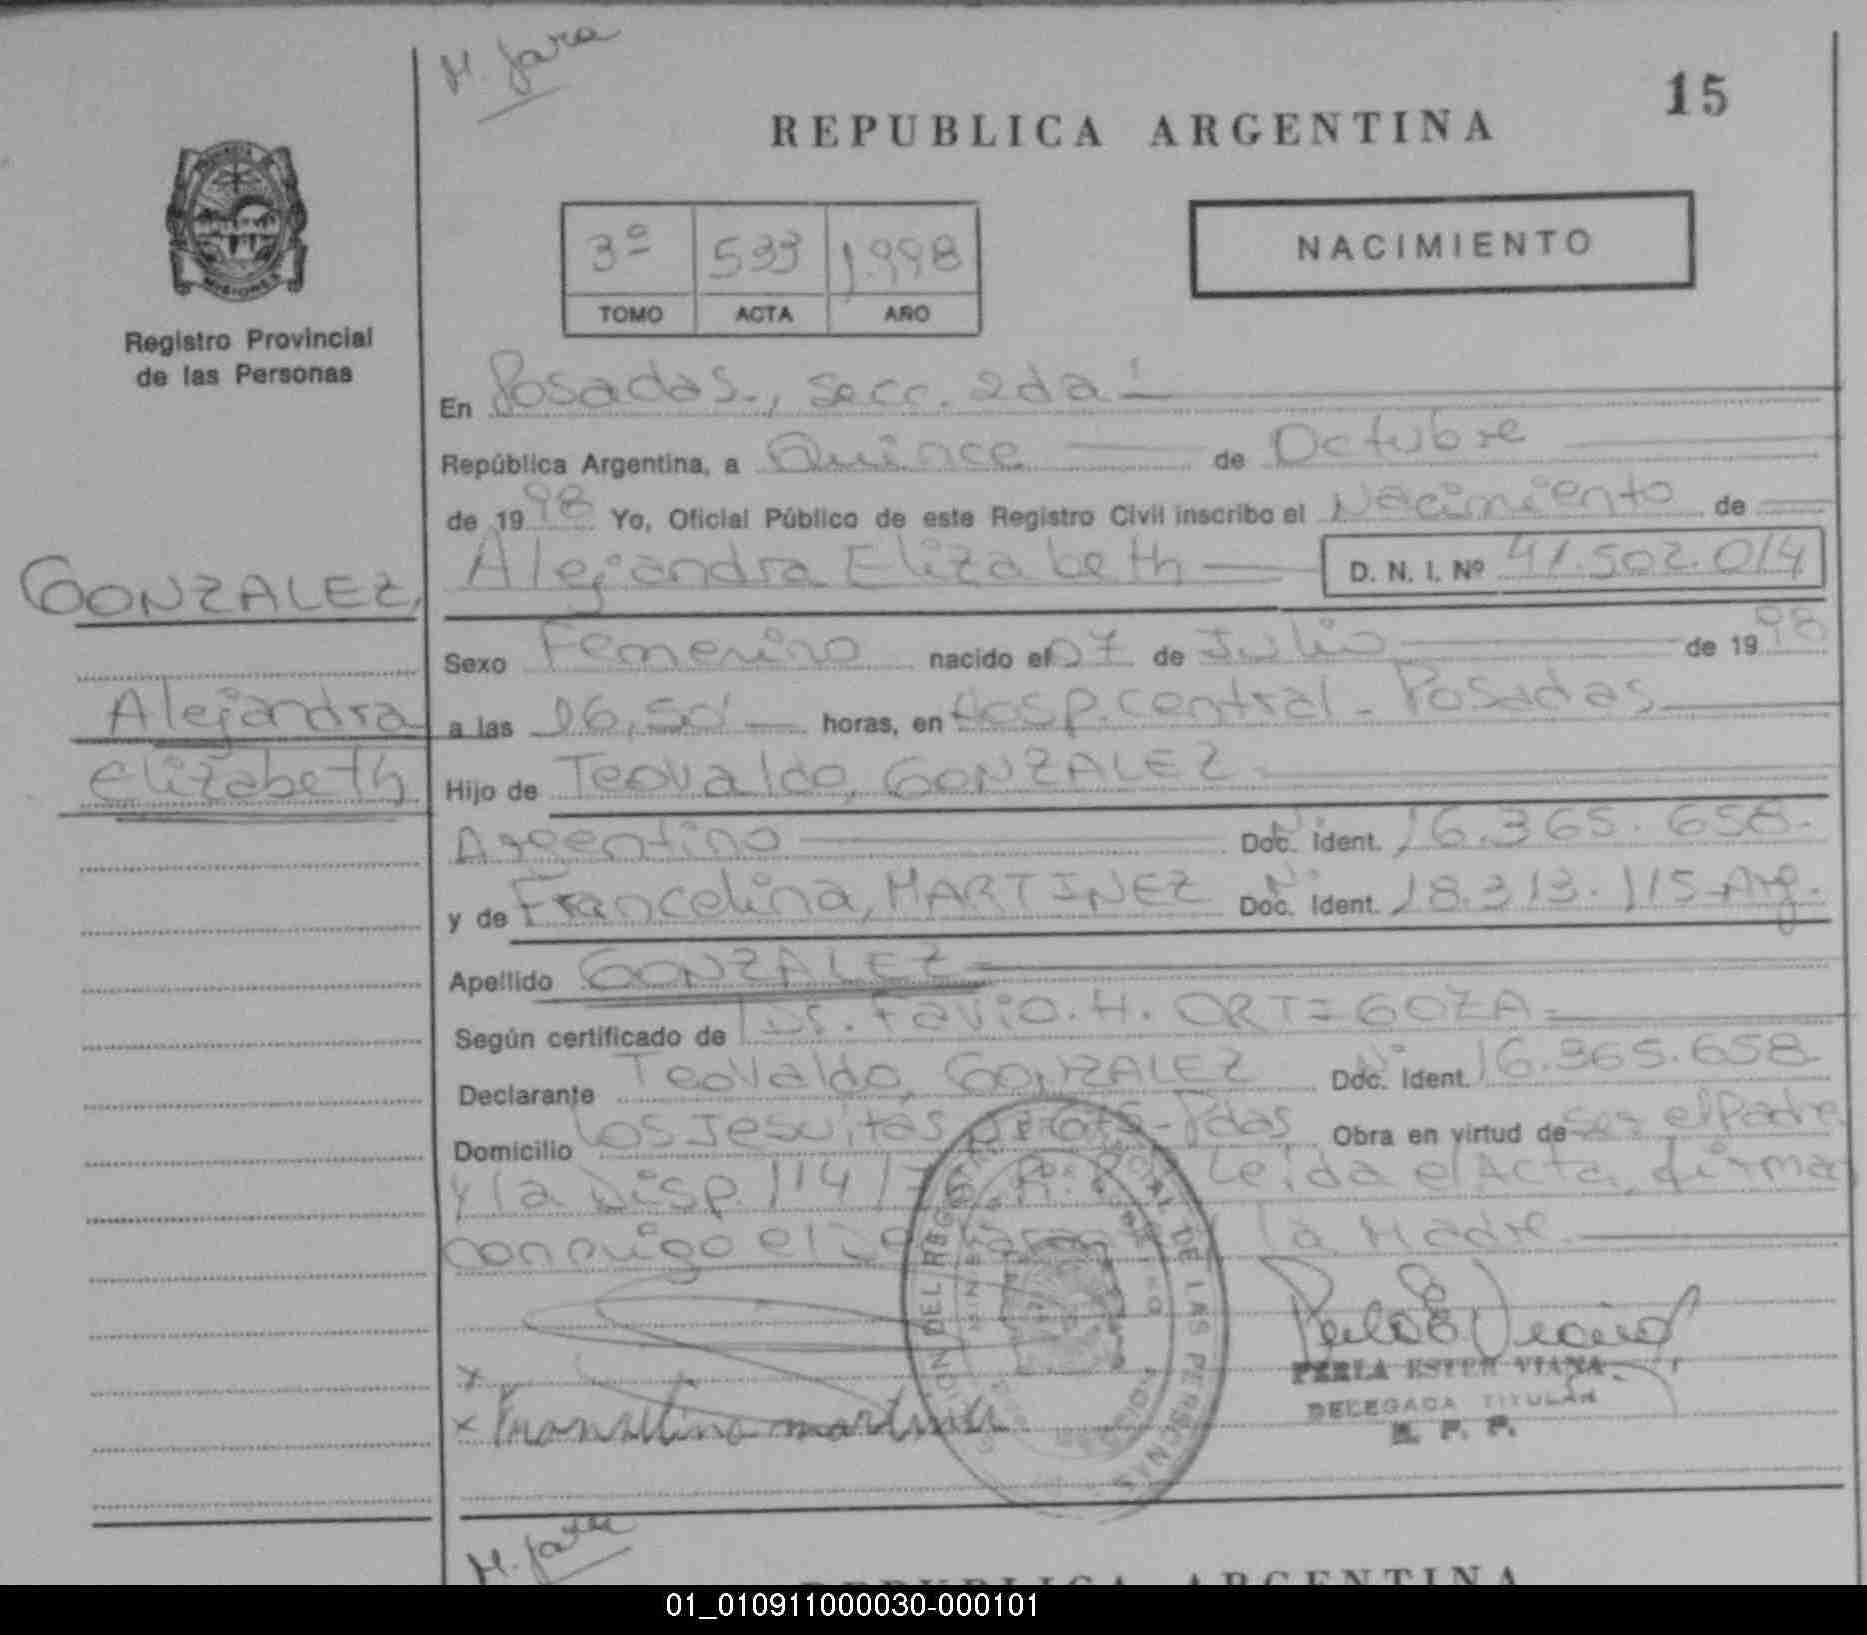 M. Jara
15
REPUBLICA ARGENTINA
3º 533 1.998
TOMO ACTA AÑO
NACIMIENTO
MISIONES
Registro Provincial
de las Personas
En Posadas., secc. 2da
República Argentina, a Quince de Octubre
de 1998 Yo, Oficial Público de este Registro Civil inscribo el Nacimiento de
Alejandra Elizabeth D. N. I. Nº 41.502.014
GONZALEZ,
Alejandra
Elizabeth
Sexo Femenino nacido el 07 de Julio de 1998
a las 16,50 horas, en Hosp. central - Posadas
Hijo de Teovaldo, GONZALEZ
Argentino Doc. Ident. 16.365.658.
y de Francelina, MARTINEZ Doc. Ident. 18.313.115-Arg.
Apellido GONZALEZ
Según certificado de Dr. Favio. H. ORTEGOZA
Declarante Teovaldo, GONZALEZ Doc. Ident. 16.365.658
Domicilio Los Jesuitas Pdas Obra en virtud de ser el Padre
y la Disp. 114/76 Leida el Acta, firma
conmigo el la Madre
DEL REGISTRO PROVINCIAL DE LAS PERSONAS
PERLA ESTER VIANA
DELEGADA TITULAR
R. P. P.
x
x Franselina martines
M. Jara
REPUBLICA ARGENTINA
01_010911000030-000101